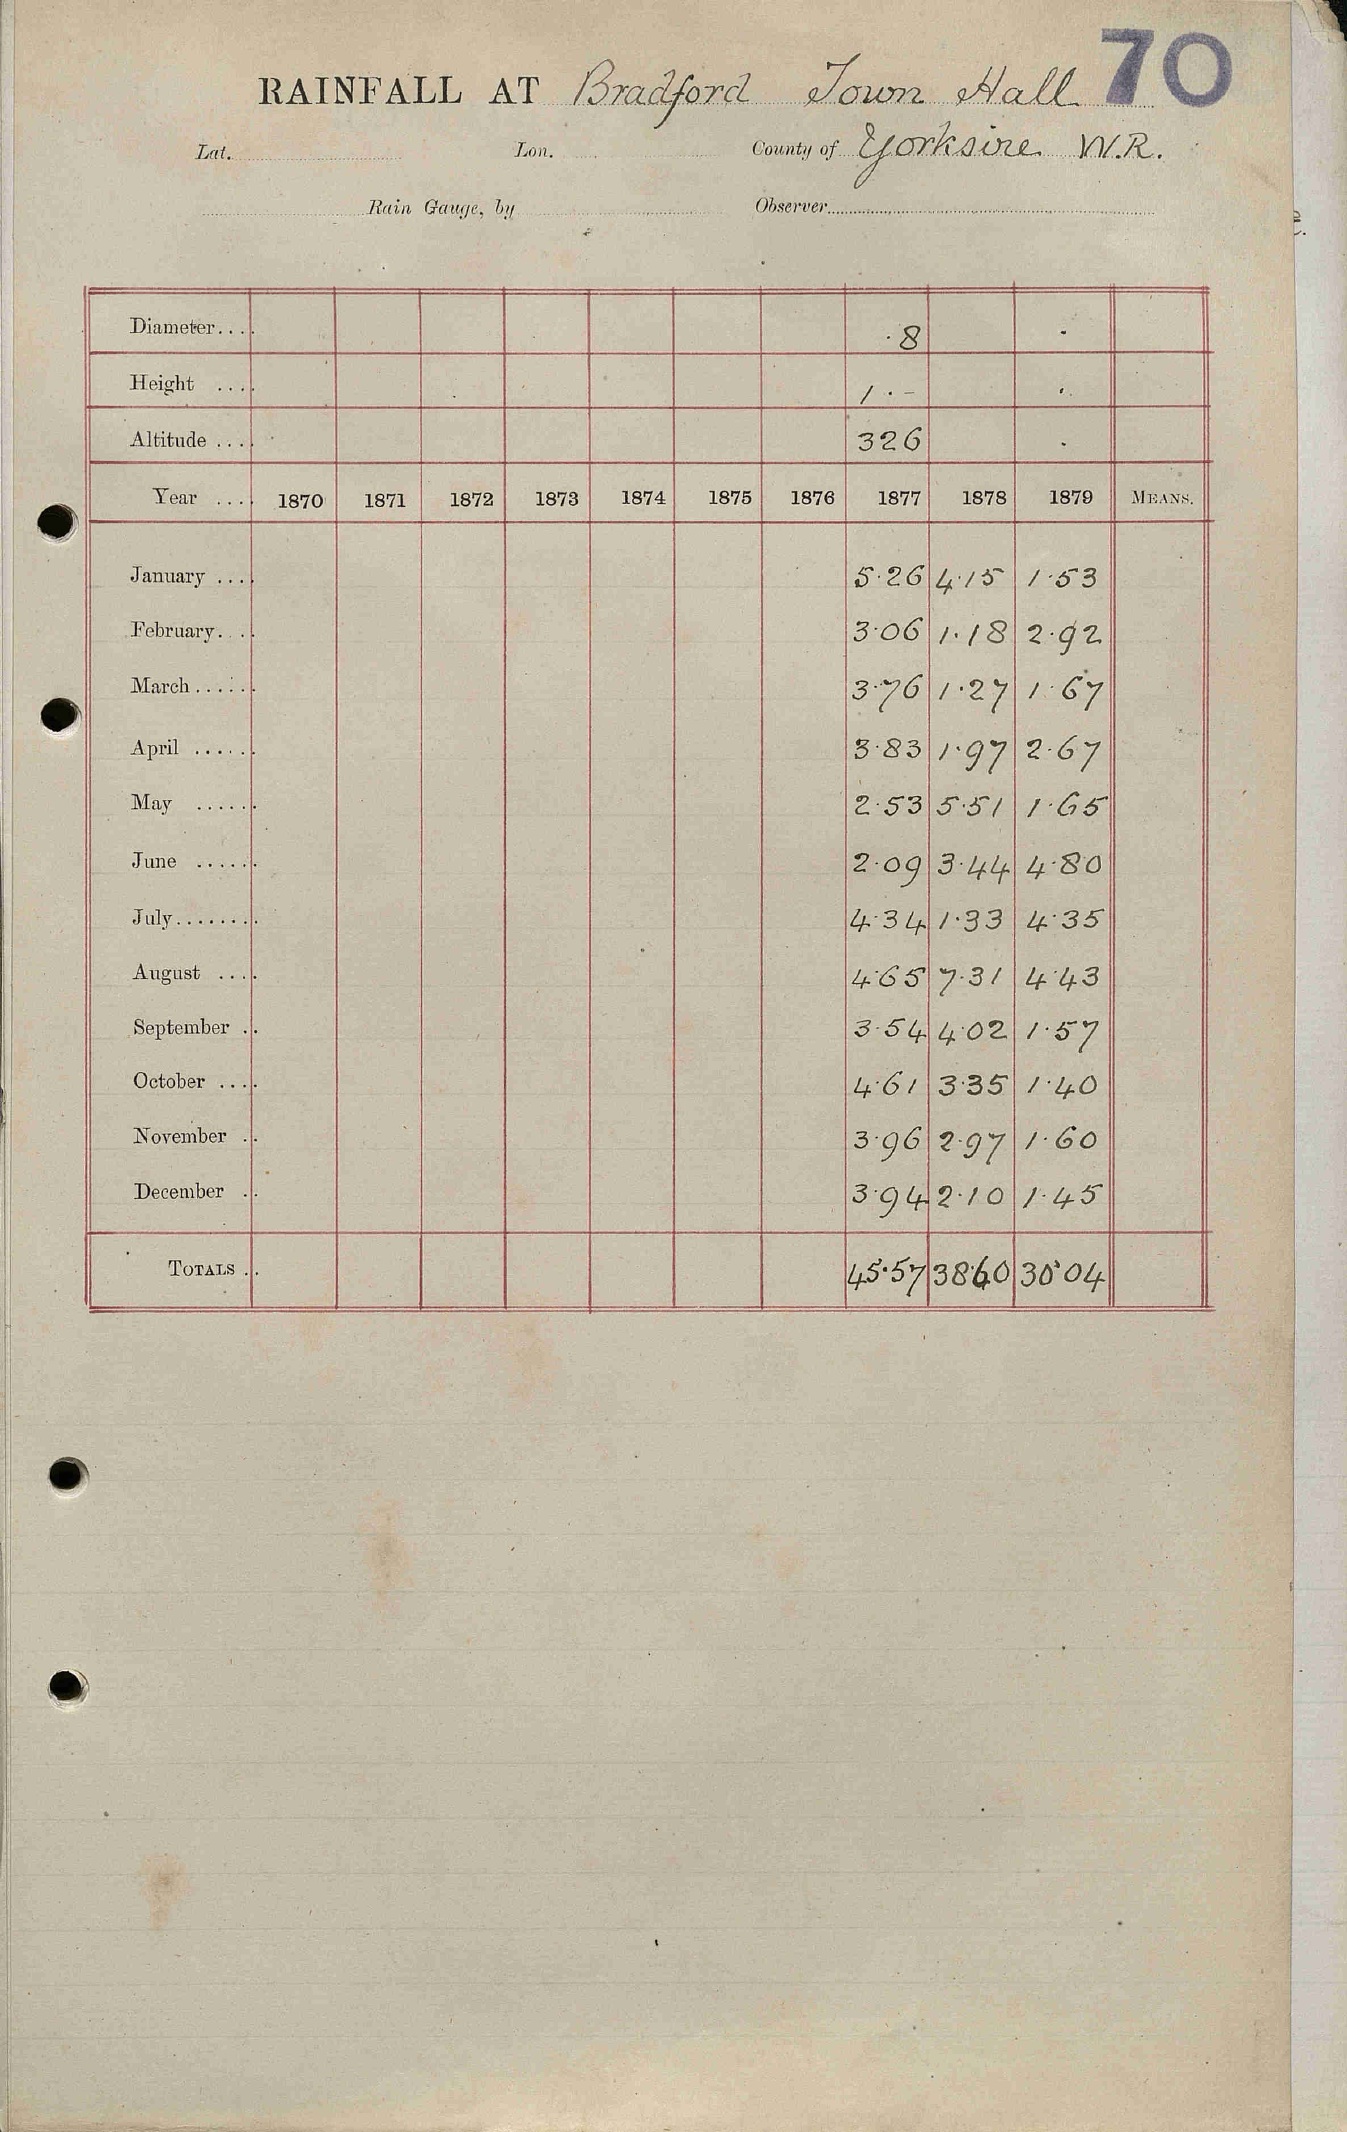 70
RAINFALL AT Bradford Town Hall
Lat. Lon. County of Yorksire W.R.
Rain Gauge, by Observer
Diameter.... ·8 ·
Height .... 1 · - ·
Altitude .... 326 ·
Year .... 1870 1871 1872 1873 1874 1875 1876 1877 1878 1879 MEANS.
January .... 5·26 4·15 1·53
February.... 3·06 1·18 2·92
March...... 3·76 1·27 1·67
April ...... 3·83 1·97 2·67
May ...... 2·53 5·51 1·65
June ...... 2·09 3·44 4·80
July........ 4·34 1·33 4·35
August .... 4·65 7·31 4·43
September .. 3·54 4·02 1·57
October .... 4·61 3·35 1·40
November .. 3·96 2·97 1·60
December .. 3·94 2·10 1·45
TOTALS .. 45·57 38·60 30·04